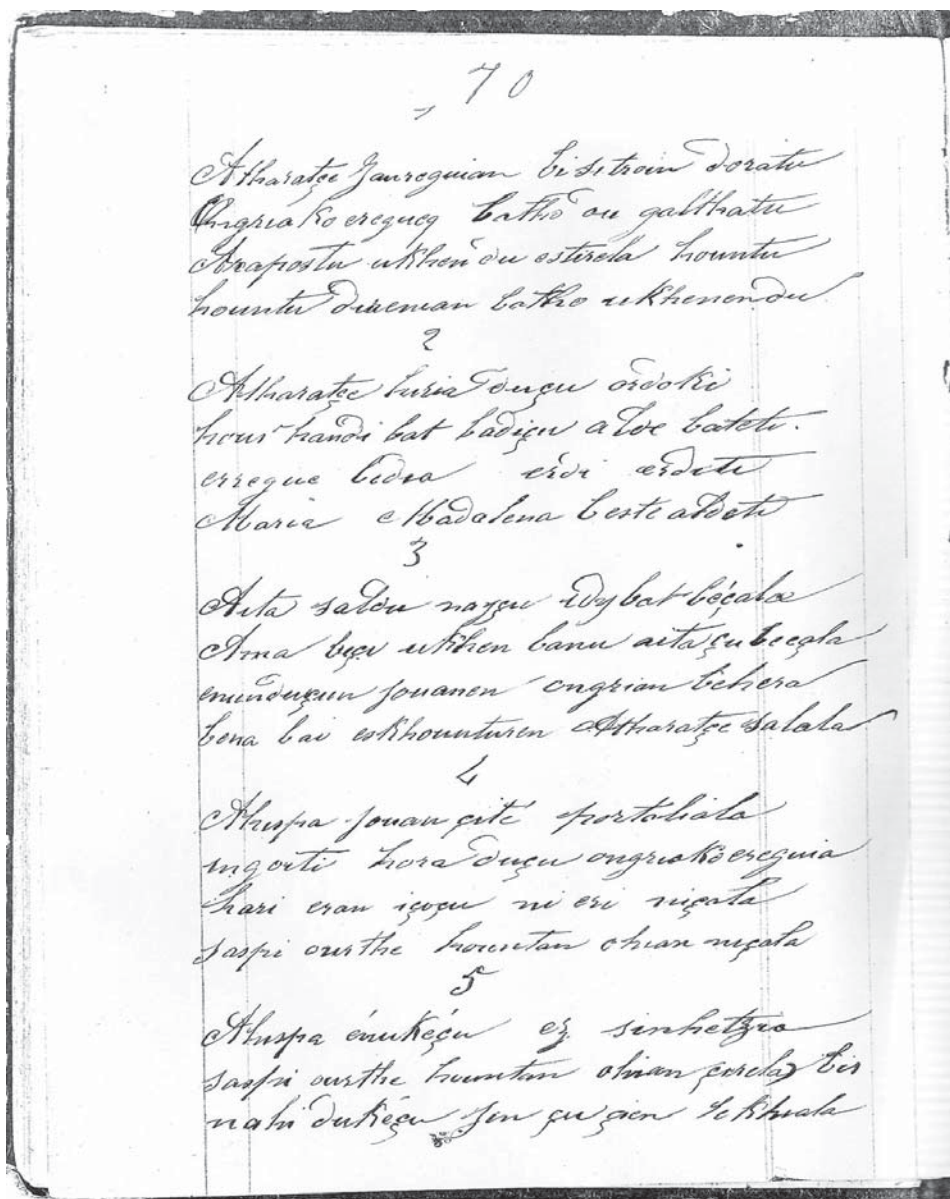 70
Atharatçe Jaureguian bi sitroin doratu
Ongriako eregueq batho ou galthatu
Arapostu ukhen du estirela hountu
hountu direnian batho ukhenen du
2
Atharatçe hiria duçu ordoki
hour handi bat badiçu alde bateti.
erregue bidia erdi erditi
Maria Madalena beste aldeti
3
Aita saldu nayçu idy bat beçala
Ama biçi ukhen banu aita çu beçala
enunduçun jouanen ongrian behera
bena bai eskhounturen Atharatçe salala
4
Ahispa jouan çité portaliala
ingoiti hora duçu ongriako ereguia
hari eran içoçu ni eri niçala
saspi ourthe hountan ohian niçala
5
Ahispa énukéçu ez sinhetzia
saspi ourthe hountan ohian çirela bis
nahi dukéçu jin çu çien lekhiala